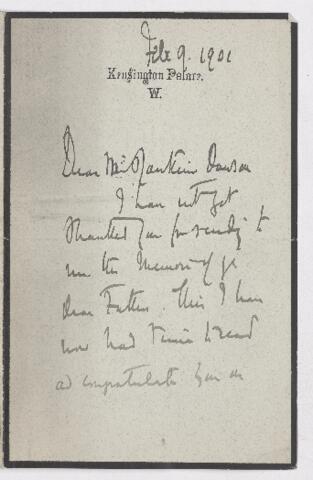 Feb 9. 1901
Kensington Palace.
W.
Dear Mr Rankine Dawson
I have not yet
thanked you for sending to
me the Memoir of yr
dear Father. This I have
now had time to read
and congratulate you on